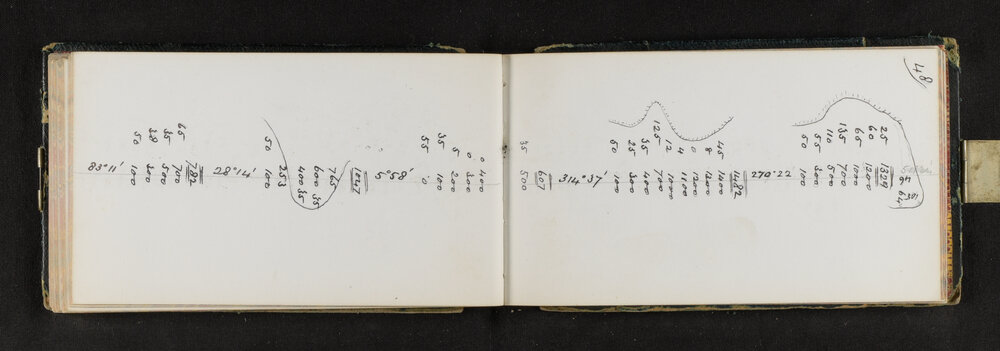 48
83°11'
50 100
38 300
35 500
65 700
782
28°14'
50 100
253
400 35
600 35
765
1047
5°58'
55 0
35 100
5 200
0 300
0 400
35 500
607
314°37'
50 100
25 300
35 400
125 700
12 1000
4 1100
0 1200
8 1300
45 1400
1482
270°22
50 100
55 300
110 500
135 700
65 1000
60 1200
25 1329